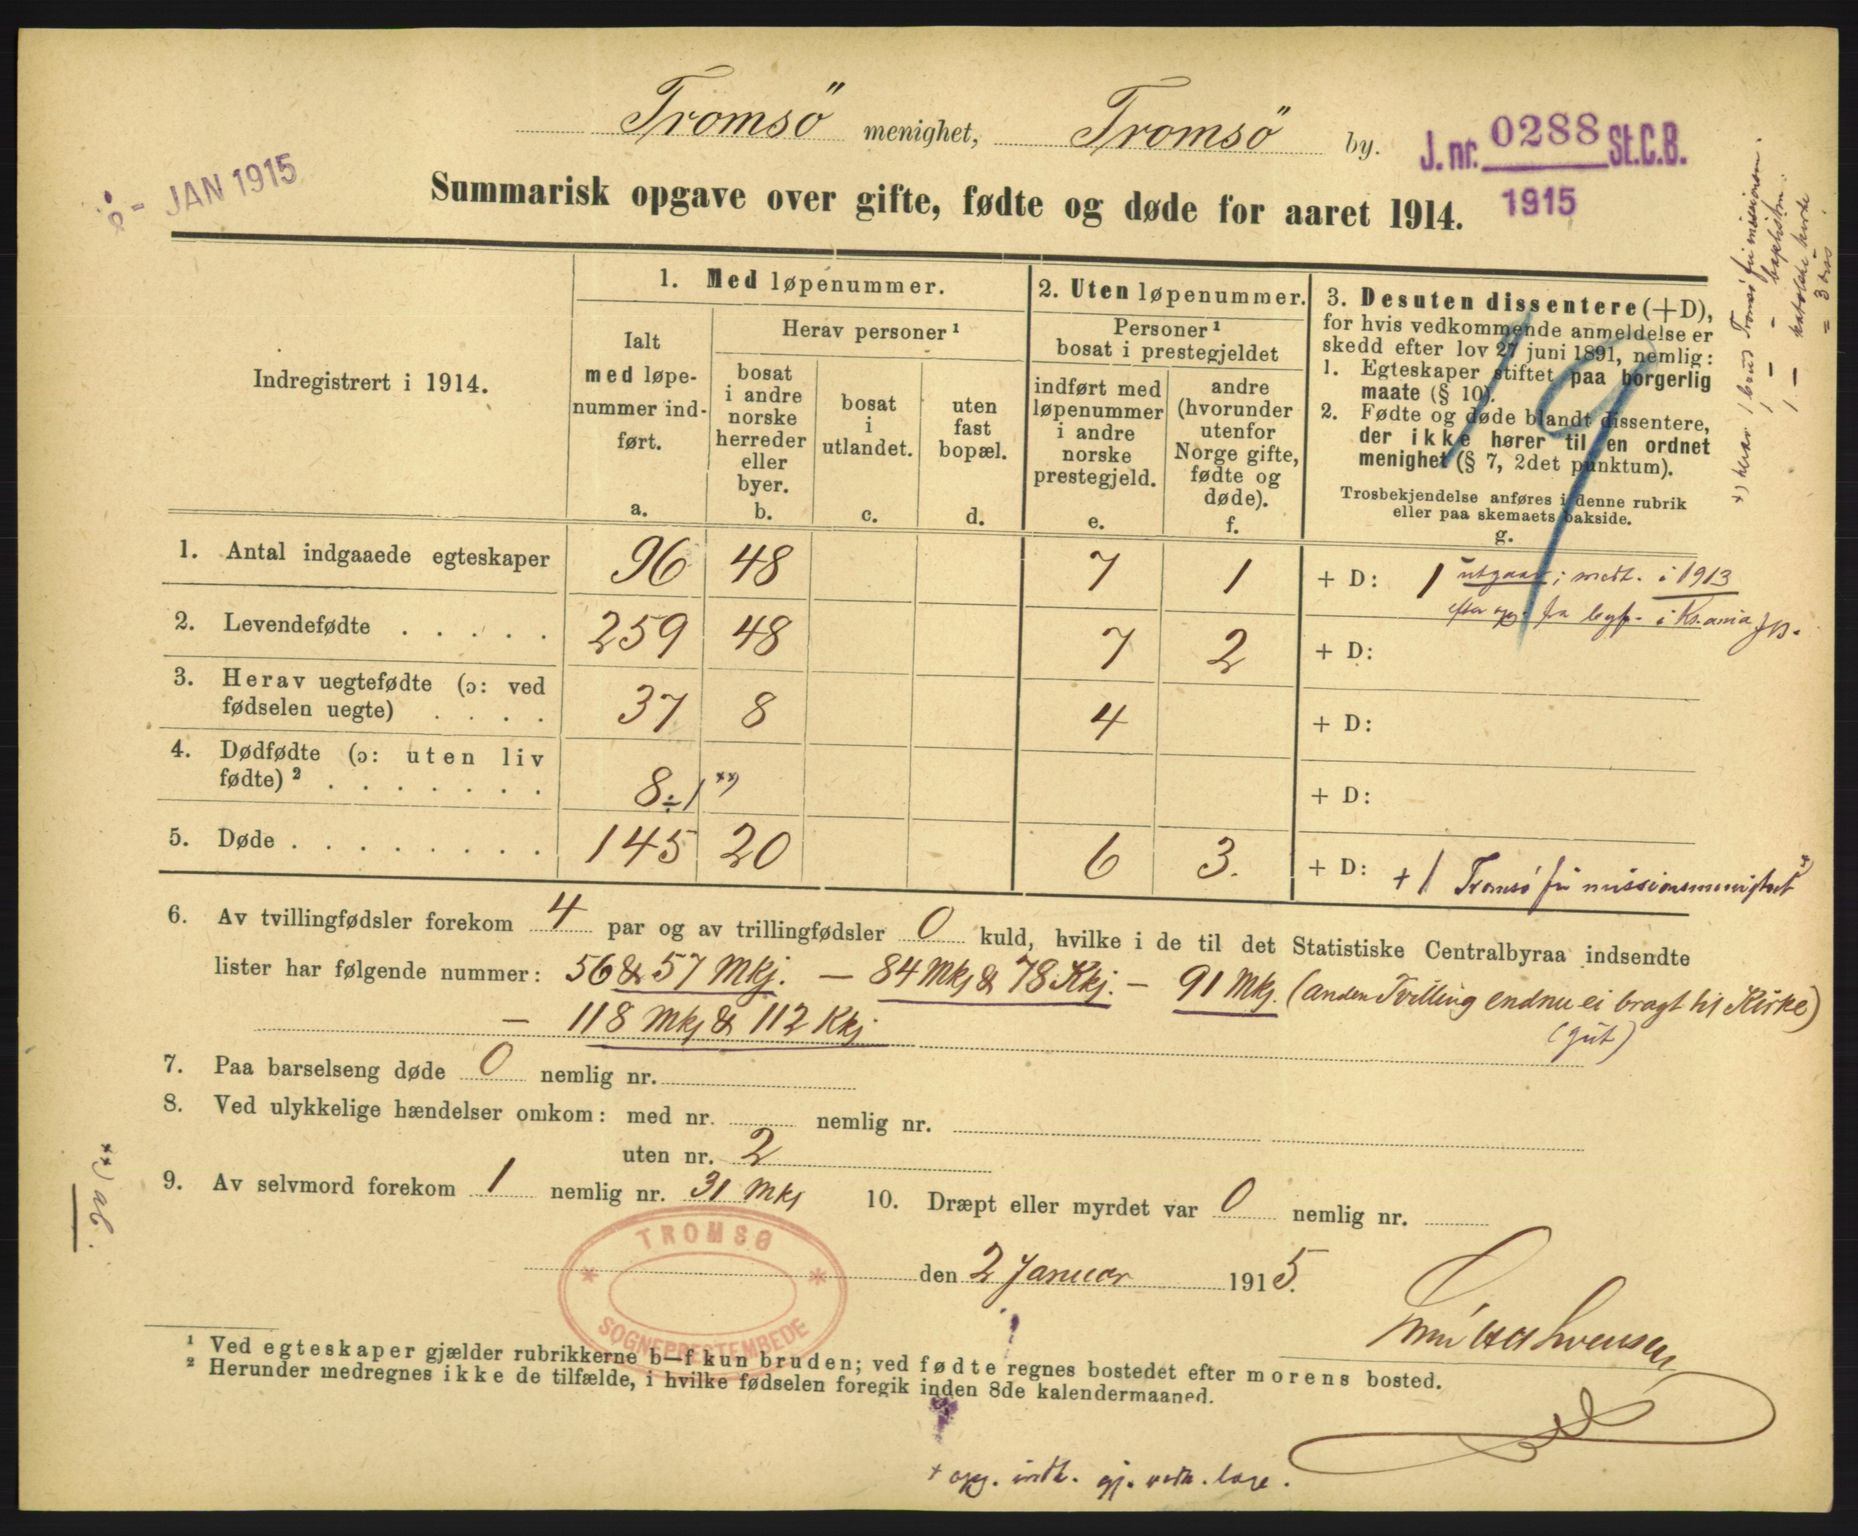 Tromsö menighet, Tromsö by.
J. nr. 0288 St.C.B.
1915
JAN 1915
Summarisk opgave over gifte, fødte og døde for aaret 1914.
Indregistrert i 1914.
1. Med løpenummer.
Ialt
med løpe-
nummer ind-
ført.
a.
Herav personer ¹
bosat
i andre
norske
herreder
eller
byer.
b.
bosat
i
utlandet.
c.
uten
fast
bopæl.
d.
2. Uten løpenummer.
Personer ¹
bosat i prestegjeldet
indført med
løpenummer
i andre
norske
prestegjeld.
e.
andre
(hvorunder
utenfor
Norge gifte,
fødte og
døde).
f.
3. Desuten dissentere (+D),
for hvis vedkommende anmeldelse er
skedd efter lov 27 juni 1891, nemlig:
1. Egteskaper stiftet paa borgerlig
maate (§ 10).
2. Fødte og døde blandt dissentere,
der ikke hører til en ordnet
menighet (§ 7, 2det punktum).
Trosbekjendelse anføres i denne rubrik
eller paa skemaets bakside.
g.
19
1. Antal indgaaede egteskaper 96 48 7 1 + D: 1 utgaar; medt. i 1913
i Kr.ania
2. Levendefødte . . . . . 259 48 7 2 + D:
3. Herav uegtefødte (ɔ: ved
fødselen uegte) . . . . 37 8 4 + D:
4. Dødfødte (ɔ: uten liv
fødte) ² . . . . . . . 8 ÷ 1 **) + D:
5. Døde . . . . . . . . 145 20 6 3. + D: + 1 Tromsö fri missionsmenighet *)
6. Av tvillingfødsler forekom 4 par og av trillingfødsler 0 kuld, hvilke i de til det Statistiske Centralbyraa indsendte
lister har følgende nummer: 56 & 57 Mkj. — 84 Mkj & 78 Kkj. — 91 Mkj. (anden Tvilling endnu ei bragt til Kirke)
— 118 Mkj & 112 Kkj (gut)
7. Paa barselseng døde 0 nemlig nr.
8. Ved ulykkelige hændelser omkom: med nr. nemlig nr.
uten nr. 2
9. Av selvmord forekom 1 nemlig nr. 31 Mkj 10. Dræpt eller myrdet var 0 nemlig nr.
den 2 Januar 1915.
TROMSØ
SOGNEPRESTEMBEDE
¹ Ved egteskaper gjælder rubrikkerne b—f kun bruden; ved fødte regnes bostedet efter morens bosted.
² Herunder medregnes ikke de tilfælde, i hvilke fødselen foregik inden 8de kalendermaaned.
*) herav 1 hos Tromsö fri mission.
1 — baptistm.
1 — katolske kirke
= 3
**) ab.